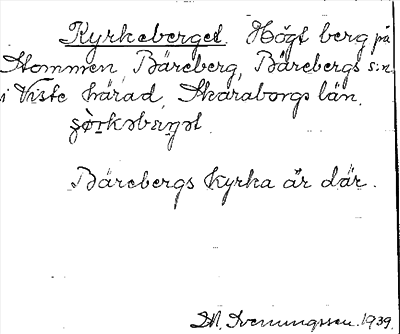 Kyrkeberget Högt berg på
Stommen, Bäreberg, Bärebergs s:n
i Viste härad, Skaraborgs län.
Bärebergs kyrka är där.
M. Svenungsson. 1939.